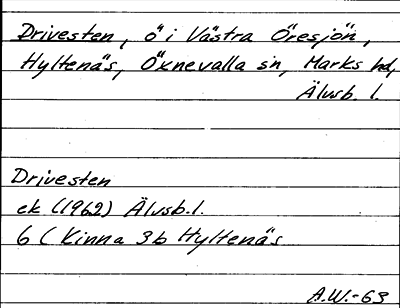 Drivesten, ö i Västra Öresjön,
Hyltenäs, Öxnevalla sn, Marks hd,
Älvsb. l.
Drivesten
ek (1962) Älvsb. l.
6 ( Kinna 3b Hyltenäs
A.W.-63